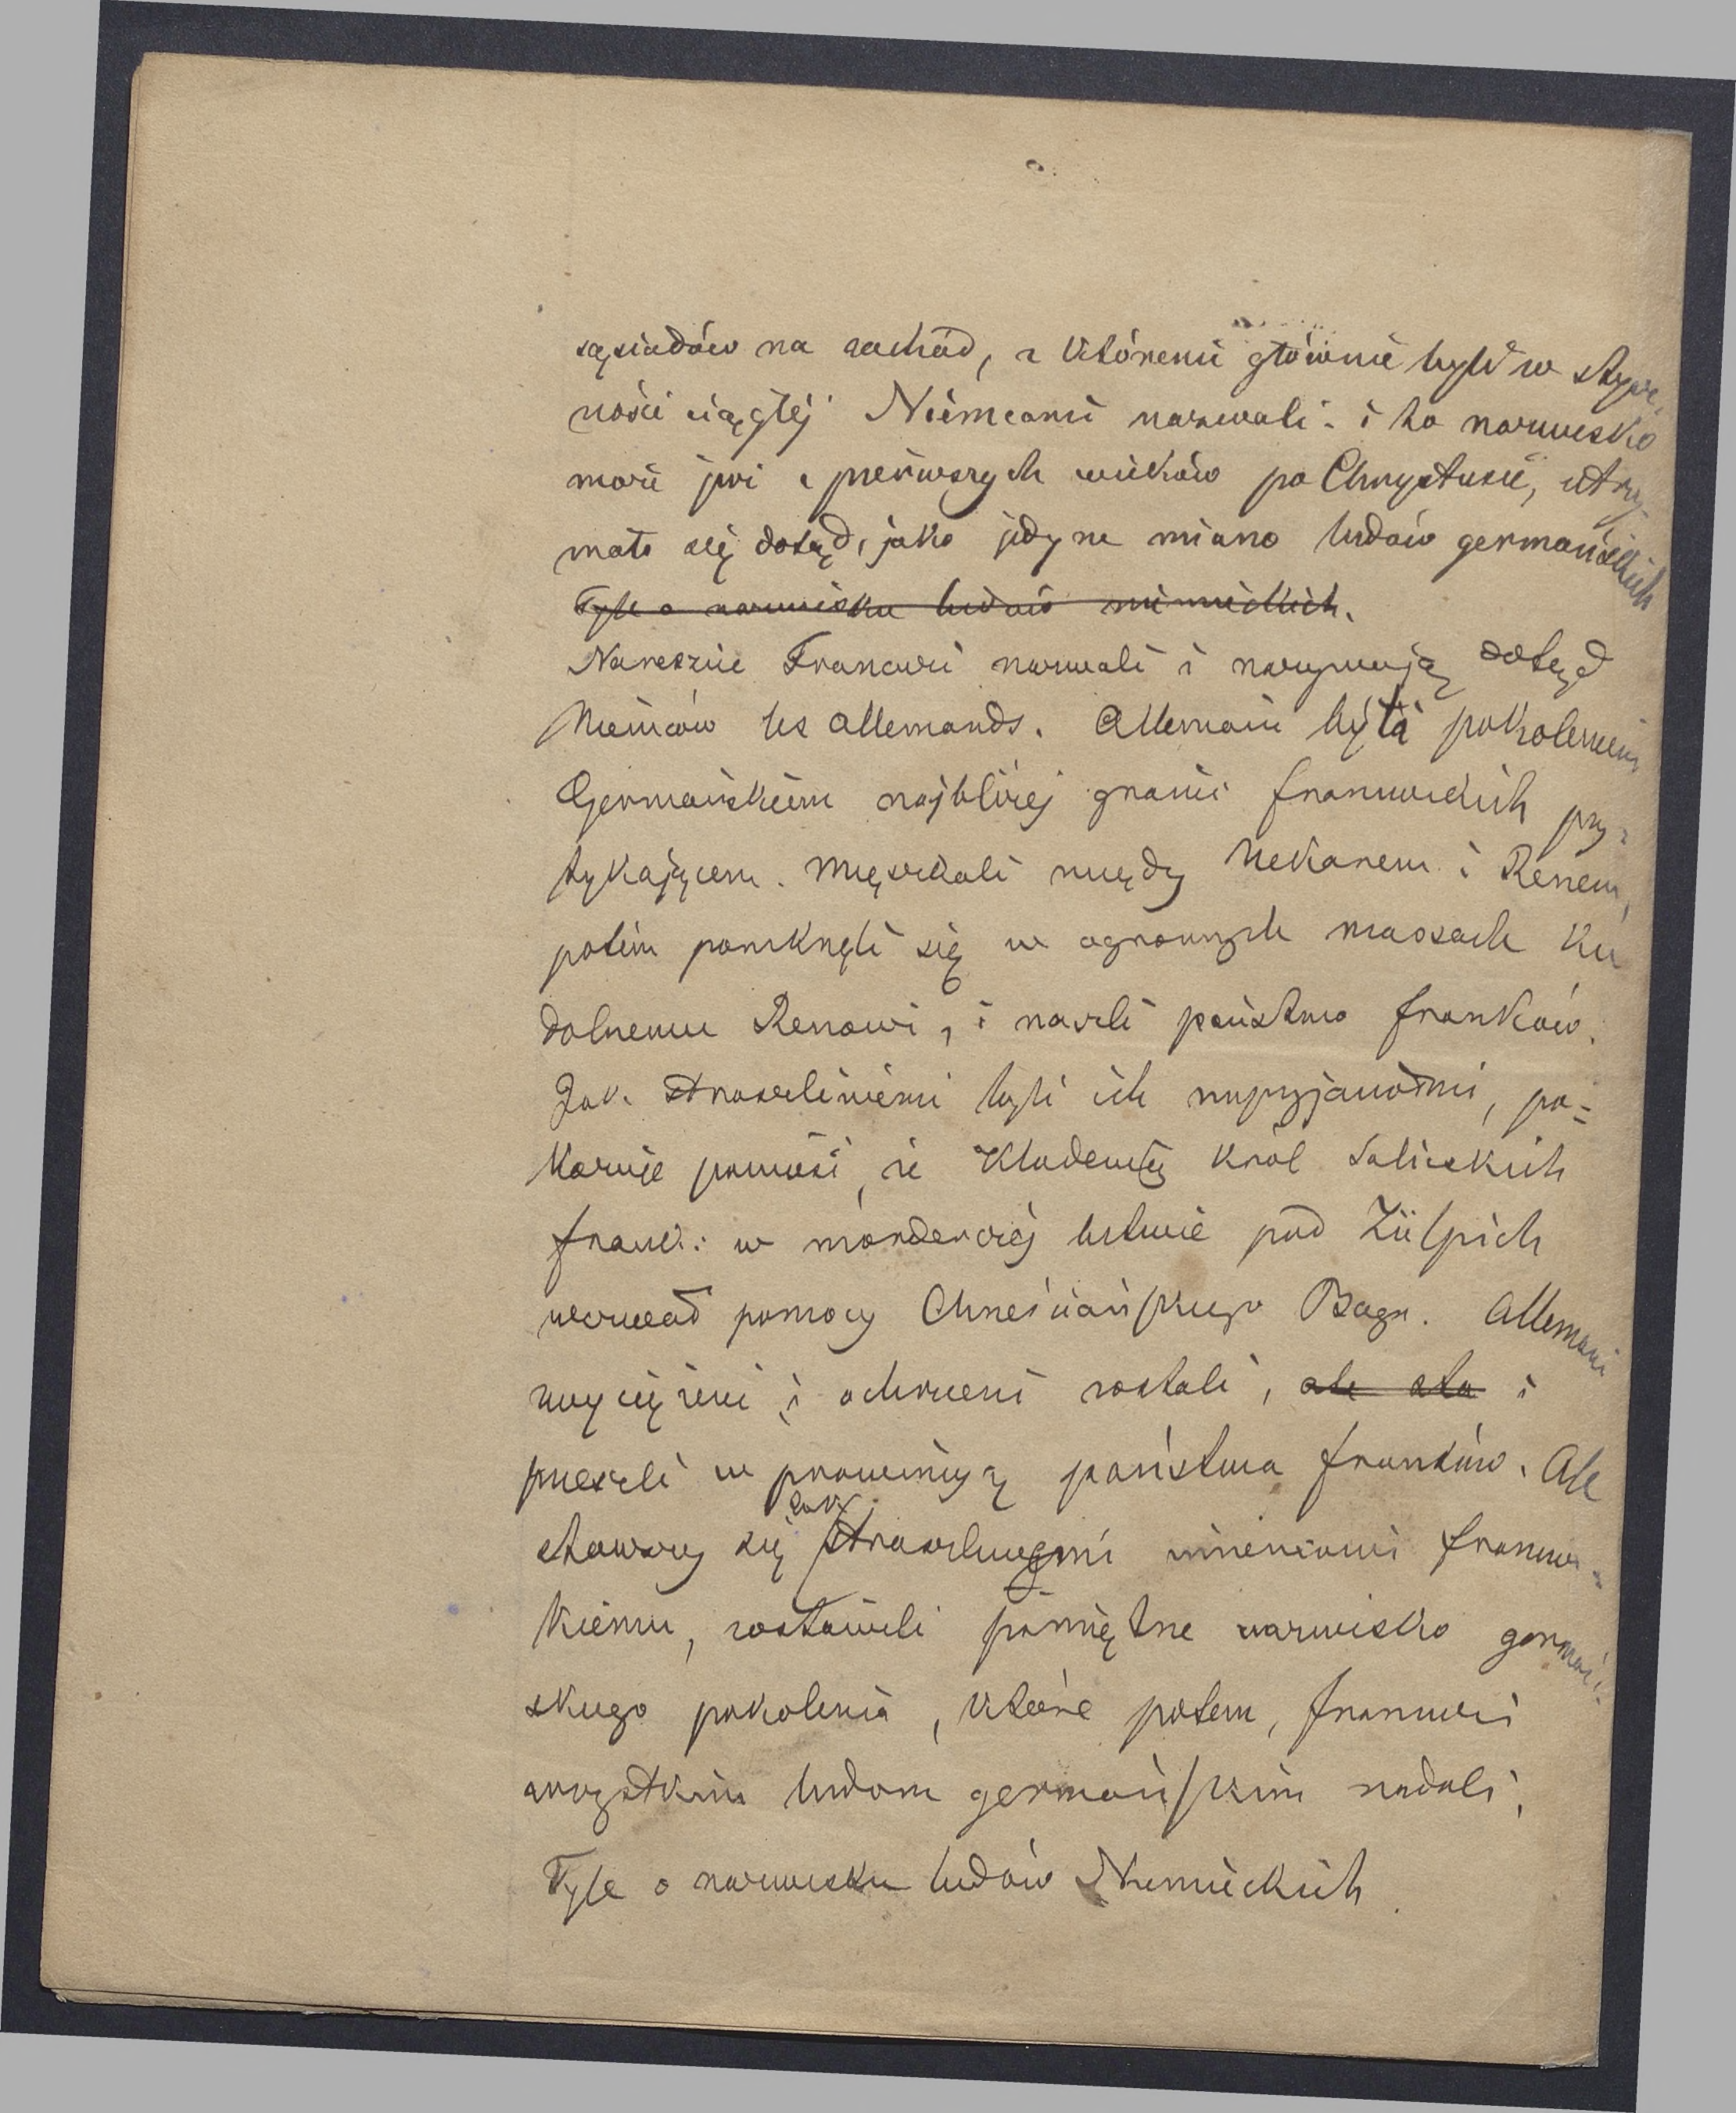 sąsiadów na zachód, z któremi głównie byli w stycz-
ności ciągłéj Niemcami nazwali. i to nazwisko
może już z pierwszych wieków po Chrystusie, utrzy
mało się dotąd, jako jedyne miano ludów germańskich
Tyle o nazwisku ludów niemieckich.
Nareszcie Francuzi nazwali i nazywają dotąd
Niemców les allemands. Allemani byli pokoleniem
Germańskiem najbliżéj granic francuzkich przy-
tykającem. Mięszkali między Nekarem i Renem,
potém pomknęli się w ogromnych massach ku
dolnemu Renowi, i naszli państwo franków.
Jak straszliwiemi byli ich nieprzyjaciołmi, po=
kazuje powieść, że Klodewig król Salickich
frank: w morderczéj bitwie pod Zülpich
wezwał pomocy Chrześciańskiego Boga. Allemani
zwyciężeni i ochrzceni zostali, ale sta i
przeszli w prowincyą państwa franków. Ale
stawszy się tak straszliwymi imieniowi francuz-
kiemu, zostawili pamiętne nazwisko germań-
skiego pokolenia, które potem, francuzi
wszystkim ludom germańskim nadali,
Tyle o nazwisku ludów Niemieckich.